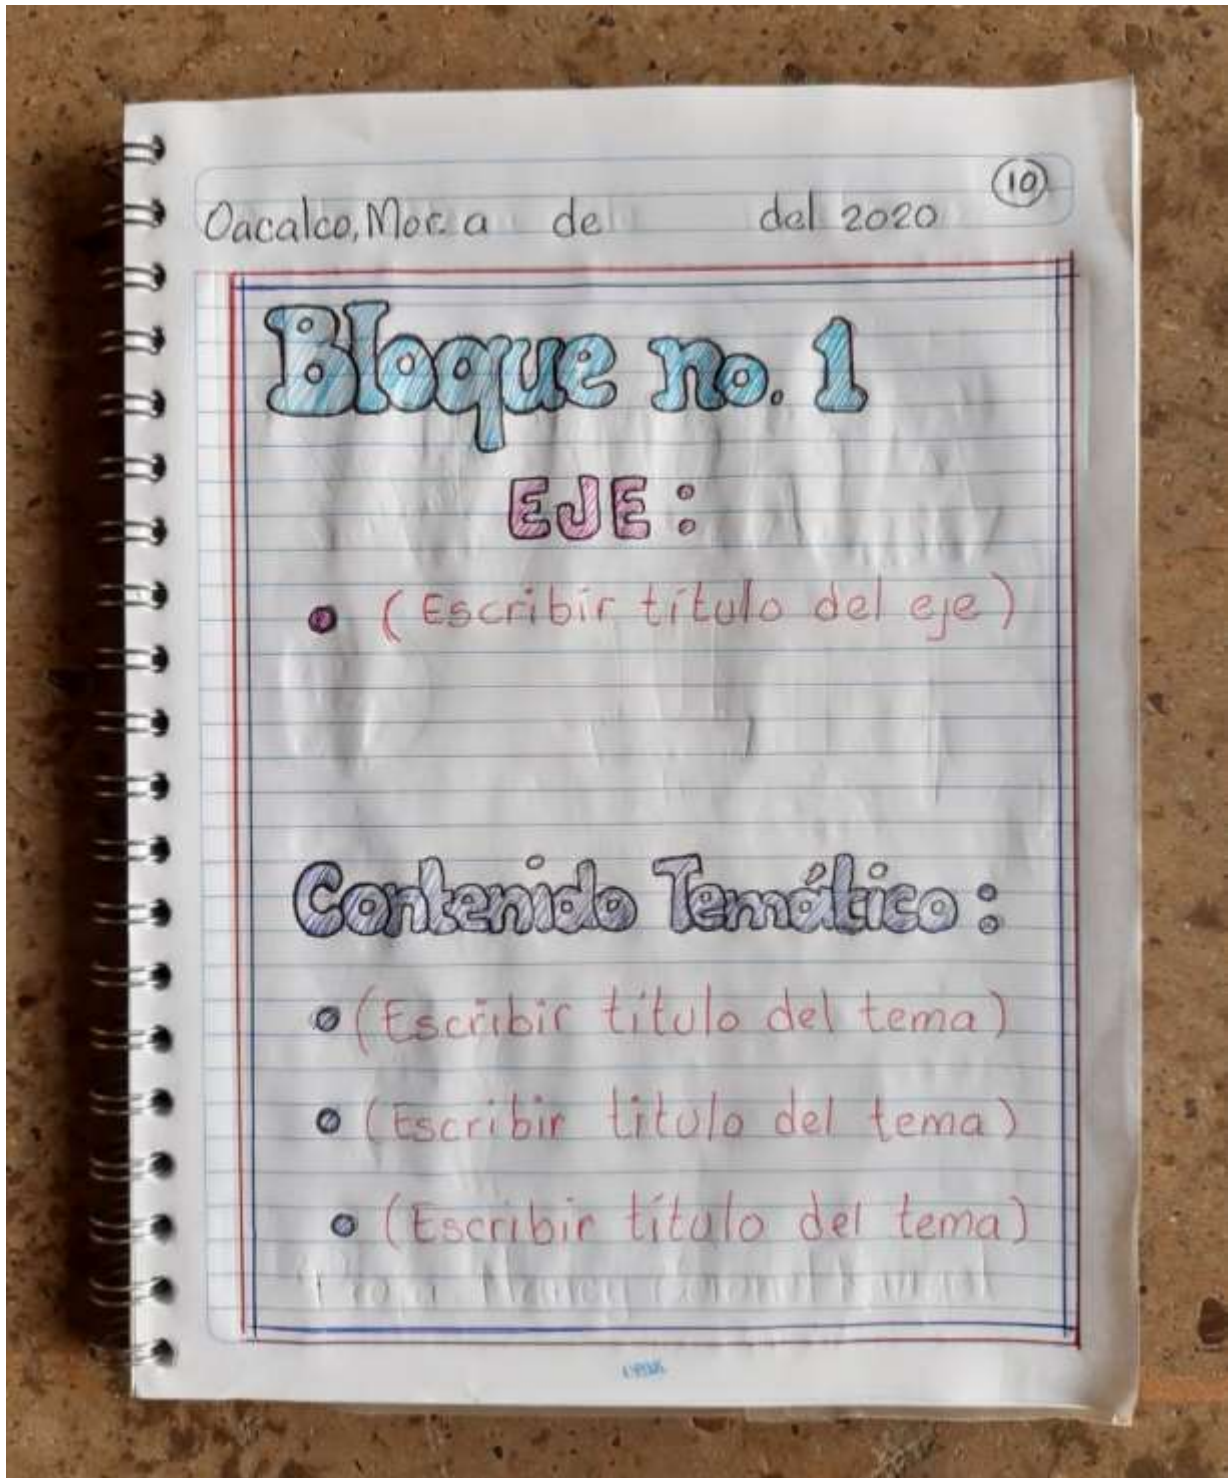 10
Oacalco, Mor. a de del 2020
Bloque no. 1
EJE:
(Escribir título del eje)
Contenido Temático:
(Escribir título del tema)
(Escribir titulo del tema)
(Escribir título del tema)